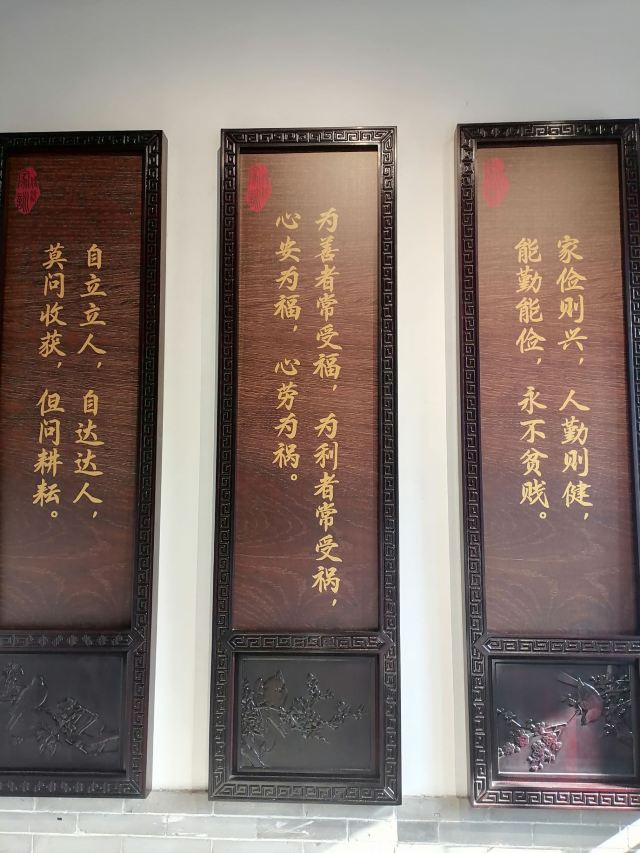 家俭则兴，人勤则健，
能勤能俭，永不贫贱。
为善者常受福，为利者常受祸，
心安为福，心劳为祸。
自立立人，自达达人，
莫问收获，但问耕耘。